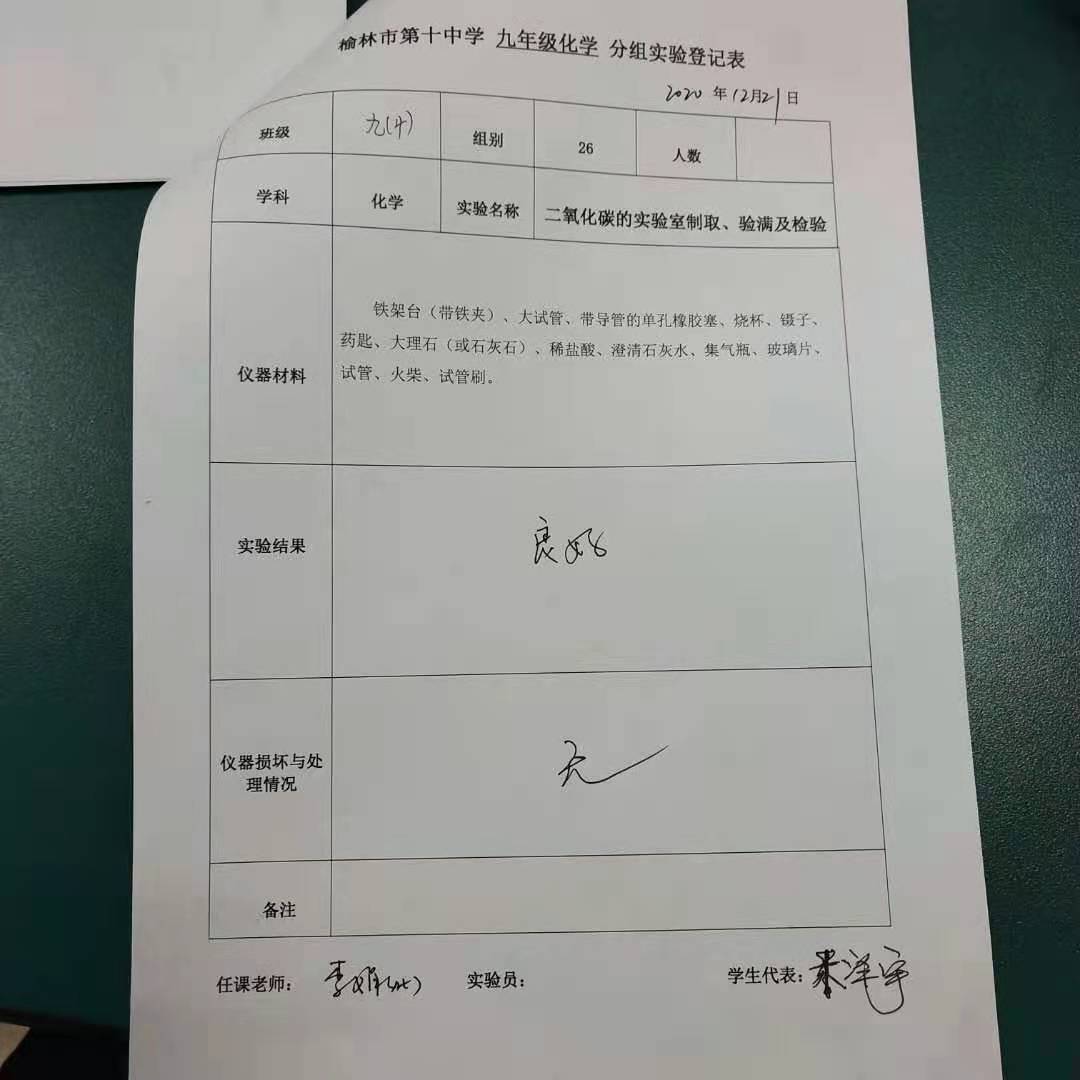 榆林市第十中学 九年级化学 分组实验登记表
2020 年 12月21日
班级 九(4) 组别 26 人数
学科 化学 实验名称 二氧化碳的实验室制取、验满及检验
仪器材料
铁架台（带铁夹）、大试管、带导管的单孔橡胶塞、烧杯、镊子、
药匙、大理石（或石灰石）、稀盐酸、澄清石灰水、集气瓶、玻璃片、
试管、火柴、试管刷。
实验结果 良好
仪器损坏与处
理情况
无
备注
任课老师： 李娟 实验员： 学生代表： 洋宇